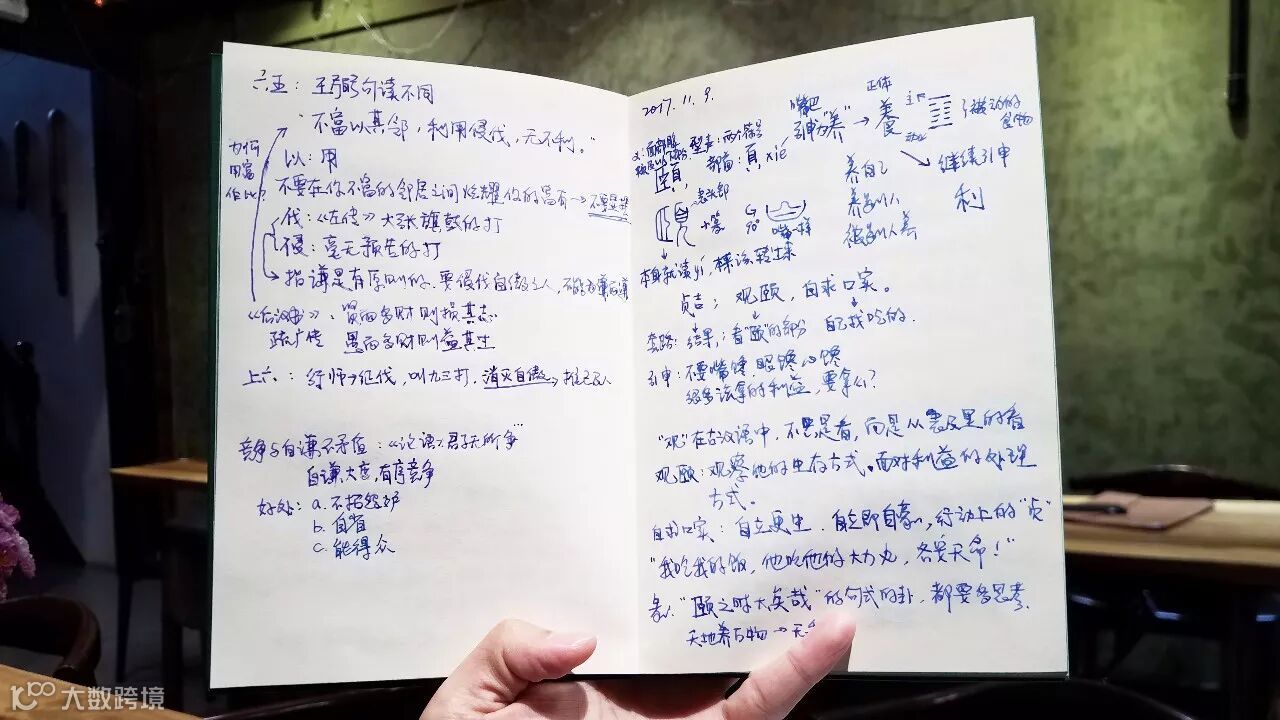 六五：王弼句读不同
"不富以其邻，利用侵伐，无不利。"
为何
用富
以：用
不要在你不富的邻居之间炫耀你的富有→不要显摆
伐：《左传》大张旗鼓的打
侵：毫无预告的打
指谦是有原则的，要侵伐自傲之人，不能为谦而谦
《后汉书》、贤而多财则损其志
疏广传 愚而多财则益其过
上六：行师→征伐，叫九三打，消灭自傲→推己及人
竞争与自谦不矛盾：《论语》君子无所争"
自谦去意，有序竞争
好处：a. 不招嫉妒
b. 自省
c. 能得众
2017. 11. 9.
嘴巴
引申为"养"→養
正体
上下
动
被动的
食物
继续引申
利
养自己
养别人
被别人养
形声：两个符号
部首：頁，xié
頤
90°
嘴一样
本身就读yí，棵该转过来
贞吉；观颐，自求口实。
套路：结果；看"颐"的部分 自己找吃的.
引申：不要嘴馋 眼馋 心馋
很多该拿的利益，要拿么？
"观"在古汉语中，不只是看，而是从表及里的看
观颐：观察他的生存方式。面对利益的处理
方式。
自求口实：自立更生，自立即自养，行动上的"贞"
"我吃我的饭，他吃他的大力丸，各安天命！"
彖："颐之时大矣哉"的句式的卦，都要多思考.
天地养万物→
大数跨境